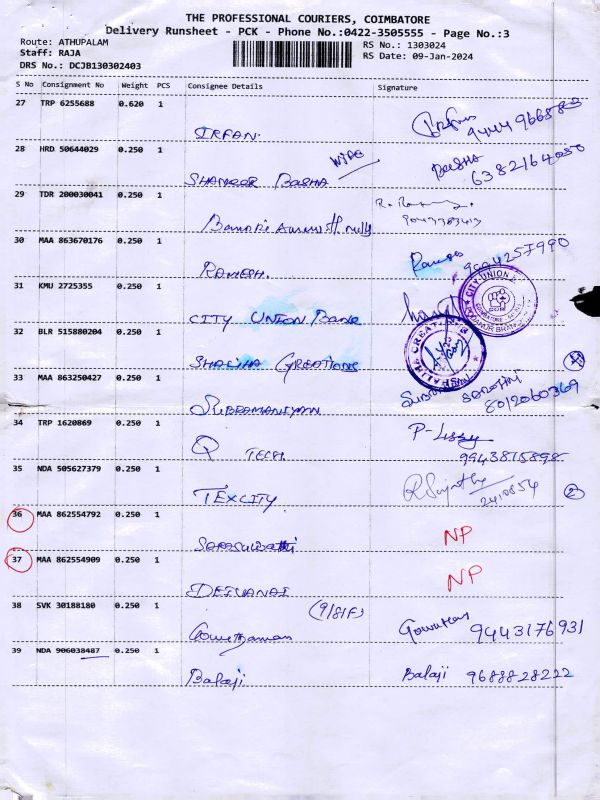 THE PROFESSIONAL COURIERS, COIMBATORE
Delivery Runsheet - PCK - Phone No.:0422-3505555 - Page No.:3
Route: ATHUPALAM
Staff: RAJA
DRS No.: DCJB130302403
RS No.: 1303024
RS Date: 09-Jan-2024
S No Consignment No Weight PCS Consignee Details Signature
27 TRP 6255688 0.620 1
IRFAN.
28 HRD 50644029 0.250 1
SHANEER BASHA 6382164050
29 TDR 200030041 0.250 1
30 MAA 863670176 0.250 1
RAMESH.
31 KMU 2725355 0.250 1
CITY UNION BANK
CITY UNION
32 BLR 515880204 0.250 1
SHALIHA CREATIONS
33 MAA 863250427 0.250 1
SUBRAMANIYAN 8012060369
34 TRP 1620869 0.250 1
Q TECH. P-Lissy
9943815898
35 NDA 505627379 0.250 1
TEXCITY. 2410854 2
36 MAA 862554792 0.250 1
NP
37 MAA 862554909 0.250 1
DEIVANAI NP
38 SVK 30188180 0.250 1
(9/81F)
Gowthaman Gowtham 9443176931
39 NDA 906038487 0.250 1
Balaji Balaji 9688828222